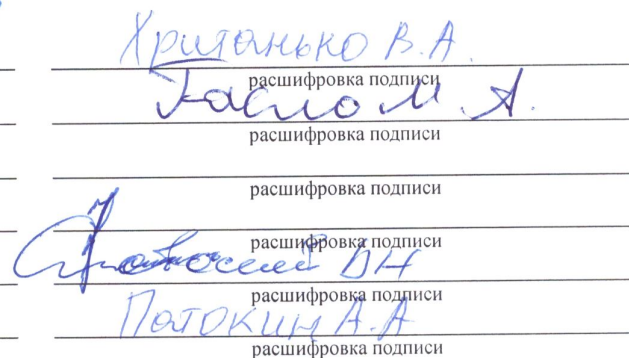 Хританько В.А.
расшифровка подписи
М.А.
расшифровка подписи
расшифровка подписи
расшифровка подписи
ВН
расшифровка подписи
Потокин А.А
расшифровка подписи